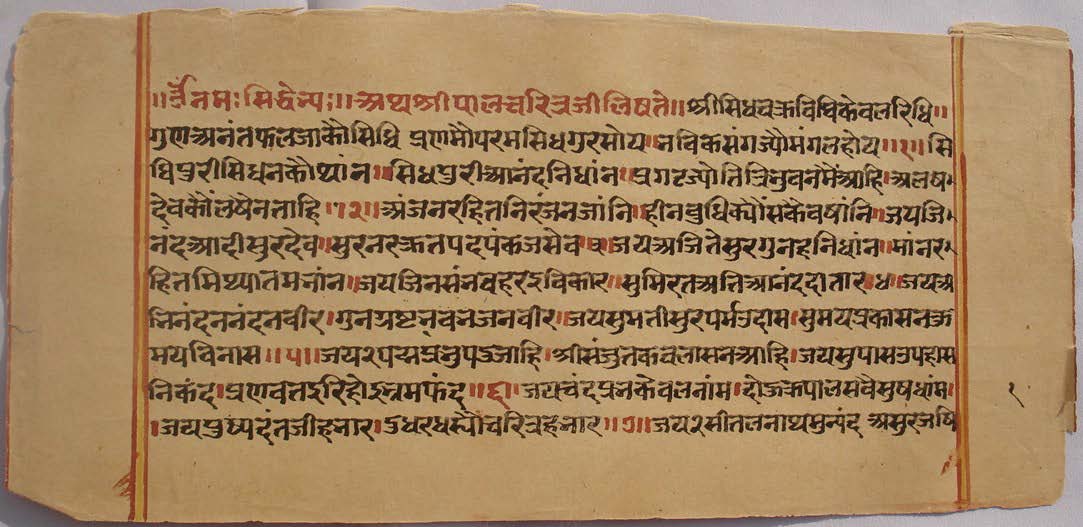 ॥ॐनमःसिद्धेभ्यः॥अथश्रीपालचरित्रजीलिष्यते॥श्रीसिधचक्रविधिकेवलरिधि॥
गुणअनंतफलजाकौसिधि प्रणमौपरमसिधगुरसोय।भविकसंगज्यौमंगलहोय॥१॥सि
धिपुरीसिधनकौथांन॥सिधपुरीआनंदनिधांन॥प्रगटज्योतित्रिभुवनमैंआहि।अलष
देवकौंलषैनताहि॥२॥अंजनरहितनिरंजनजांनि।हीनबुधिक्यौंसकैवषांनि।जयजि
नंदआदीसुरदेव।सुरनरक्रतपदपंकजसेव॥३॥जयअजितेसुरगुनहनिधांन।मांनर
हितमिथ्यातमभांन।जयजिनसंभवहरइविकार।सुमिरतअतिआनंददातार॥४॥जयअ
भिनंदननंदनवीर।गुनअष्टनवभेजनवीर।जयसुमतीसुरपर्मउदास।सुमयप्रकासनक्र
मयविनास॥५॥जय२पद्मप्रभुपउजाहि।श्रीसंजुतकवलासनआहि।जयसुपासउपहास
निकंद।प्रणवतइरिहोइभ्रमफंद॥६॥जयचंदप्रभकेवलनांम।दोऊक्रपालसवैसुषधांम।
।जयपुष्पदंतजी 1।जय२सीतलनाथमुन्यंद असुरजषि
१